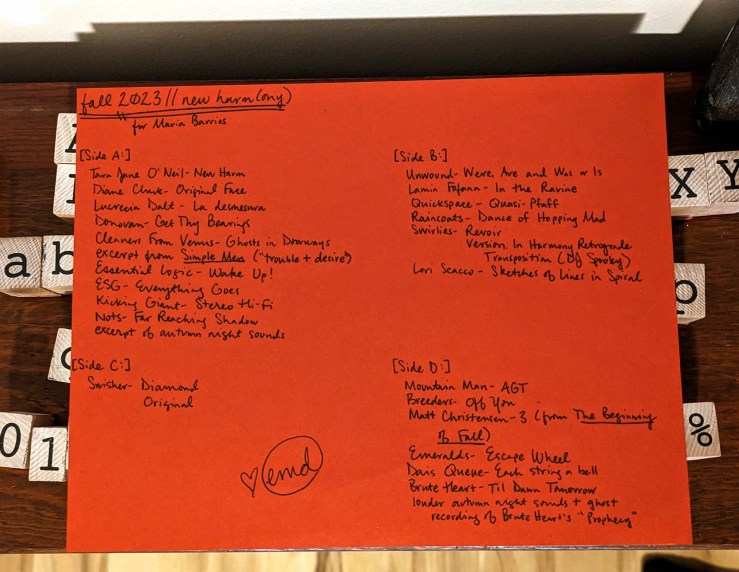 fall 2023 // new harm(ony)
for Maria Barrios
[Side A:]
Tara Jane O'Neil - New Harm
Diane Cluck - Original Face
Lucrecia Dalt - La desmesura
Donovan - Get Thy Bearings
Cleaners From Venus - Ghosts in Doorways
excerpt from Simple Men ("trouble + desire")
Essential Logic - Wake Up!
ESG - Everything Goes
Kicking Giant - Stereo Hi-Fi
Nots - Far Reaching Shadow
excerpt of autumn night sounds
[Side B:]
Unwound - Were, Are and Was or Is
Lamin Fofana - In the Ravine
Quickspace - Quasi-Pfaff
Raincoats - Dance of Hopping Mad
Swirlies - Revoir
Version. In Harmony Retrograde
Transposition (DJ Spooky)
Lori Scacco - Sketches of Lines in Spiral
[Side C:]
Swisher - Diamond
Original
[Side D:]
Mountain Man - AGT
Breeders - Off You
Matt Christensen - 3 (from The Beginning
of Fall)
Emeralds - Escape Wheel
Each string a bell
Brute Heart - Til Dawn Tomorrow
louder autumn night sounds + ghost
recording of Brute Heart's "Prophecy"
emd
a b
X Y
p
0 1
%